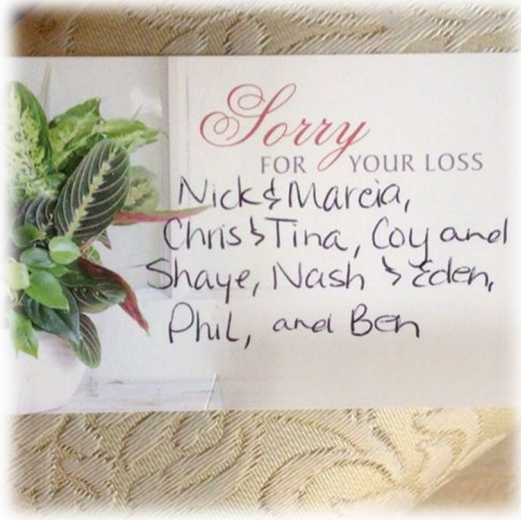 Sorry
FOR YOUR LOSS
Nick & Marcia,
Chris & Tina, Coy and
Shaye, Nash & Eden,
Phil, and Ben